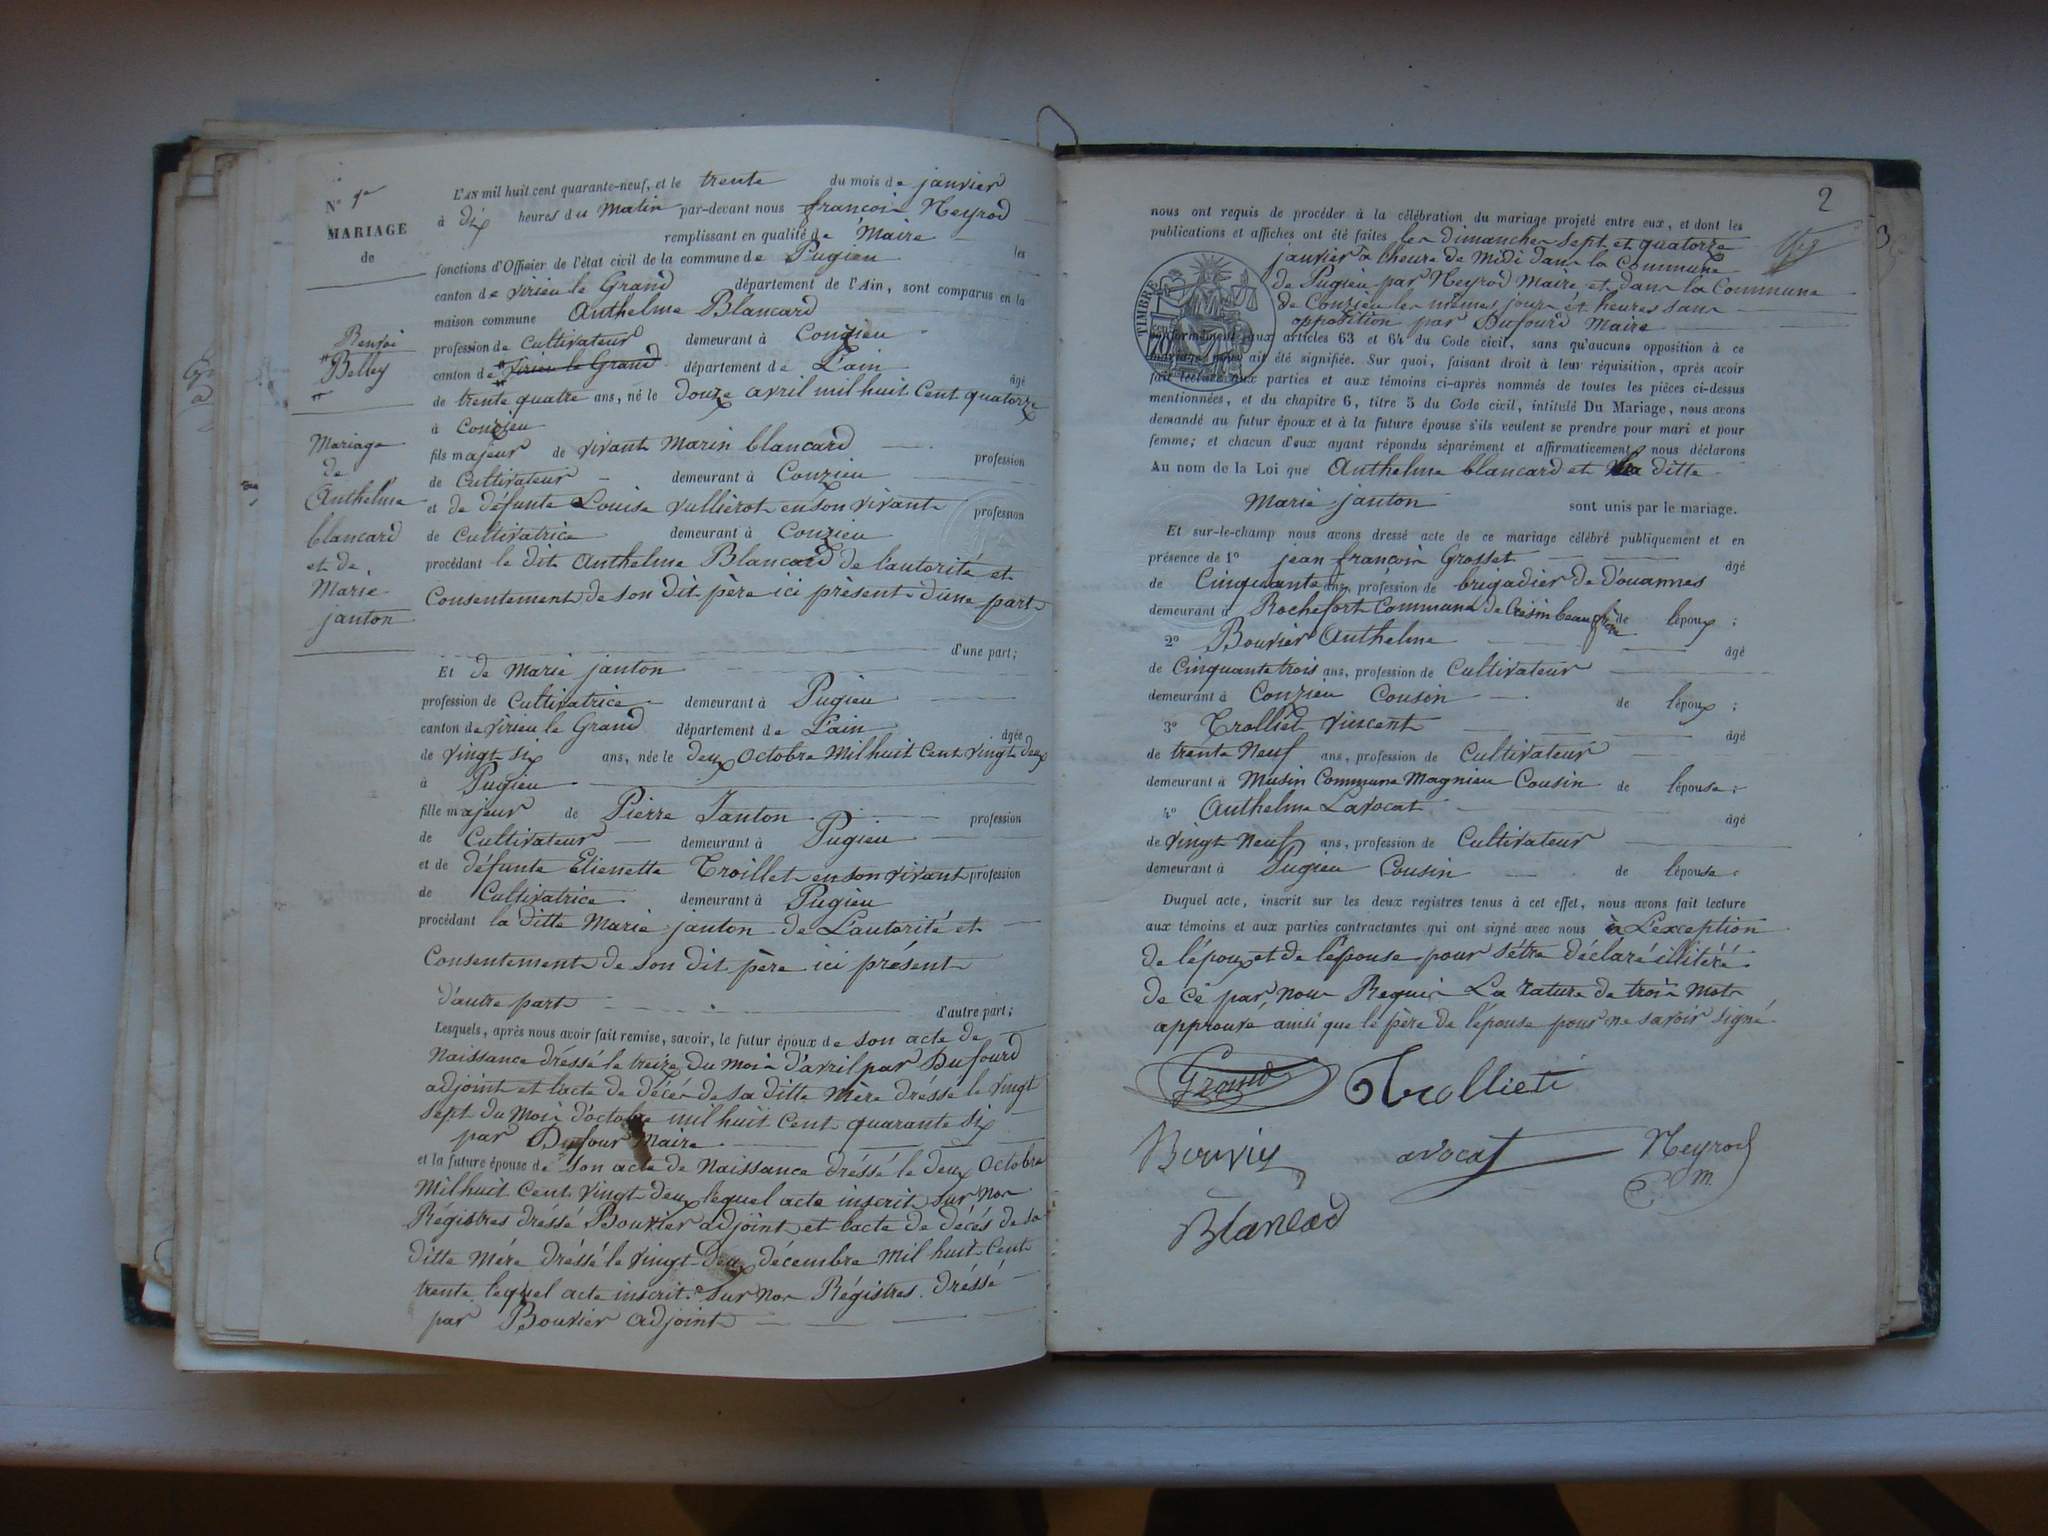 N° 1er
MARIAGE
de
Renvoi
"Belley
"
Mariage
de
Anthelme
blancard
et de
Marie
janton
L'AN mil huit cent quarante-neuf, et le trente du mois de janvier
à dix heures du Matin par-devant nous françois Neyrod
remplissant en qualité de Maire les
fonctions d'Officier de l'état civil de la commune de Pugieu
canton de virieu le Grand département de l'Ain, sont comparus en la
maison commune Anthelme Blancard
profession de Cultivateur demeurant à Conzieu
canton de "virieu le Grand" département de L'ain âgé
de trente quatre ans, né le douze avril mil huit Cent quatorze
à Conzieu
fils majeur de vivant Marin blancard profession
de Cultivateur demeurant à Conzieu
et de défunte Louise vullierot en son vivant profession
de Cultivatrice demeurant à Conzieu
procédant le dit Anthelme Blancard de l'autorité et
Consentement de son dit père ici présent d'une part
d'une part;
Et de Marie janton
profession de Cultivatrice demeurant à Pugieu
canton de virieu le Grand département de L'ain âgée
de vingt six ans, née le deux Octobre Mil huit Cent vingt deux
à Pugieu
fille majeur de Pierre Janton profession
de Cultivateur demeurant à Pugieu
et de défunte Etienette Troillet en son vivant profession
de Cultivatrice demeurant à Pugieu
procédant la ditte Marie janton de L'autorité et
Consentement de son dit père ici présent
d'autre part d'autre part;
Lesquels, après nous avoir fait remise, savoir, le futur époux de son acte de
Naissance dréssé le treize du mois d'avril par Dufourd
adjoint et l'acte de décés de sa ditte mère dréssé le vingt
sept du Mois d'octobre mil huit Cent quarante six
par Dufour Maire
et la future épouse de son acte de Naissance dréssé le deux Octobre
Mil huit Cent vingt deux lequel acte inscrit sur nos
Régistres dréssé Bouvier adjoint et l'acte de décés de sa
ditte mére dréssé le vingt deux décembre mil huit Cent
trente lequel acte inscrit sur nos Régistres dréssé
par Bouvier adjoint
2
3
nous ont requis de procéder à la célébration du mariage projeté entre eux, et dont les
publications et affiches ont été faites les dimanches sept et quatorze
janvier à l'heure de Midi dans la Commune
de Pugieu par Neyrod Maire et dans la Commune
de Conzieu les mêmes jours et heures sans
opposition par Dufourd Maire
TIMBRE
conformément aux articles 63 et 64 du Code civil, sans qu'aucune opposition à ce
mariage nous ait été signifiée. Sur quoi, faisant droit à leur réquisition, après avoir
fait lecture aux parties et aux témoins ci-après nommés de toutes les pièces ci-dessus
mentionnées, et du chapitre 6, titre 5 du Code civil, intitulé Du Mariage, nous avons
demandé au futur époux et à la future épouse s'ils veulent se prendre pour mari et pour
femme; et chacun d'eux ayant répondu séparément et affirmativement, nous déclarons
Au nom de la Loi que Anthelme blancard et la ditte
Marie janton sont unis par le mariage.
Et sur-le-champ nous avons dressé acte de ce mariage célébré publiquement et en
présence de 1° jean françois Grosset âgé
de Cinquante ans, profession de brigadier de Douannes
demeurant à Rochefort Commune de Cresin beau frère de l'époux;
2° Bouvier Anthelme âgé
de Cinquante trois ans, profession de Cultivateur
demeurant à Conzieu Cousin de l'époux;
3° Trolliet vincent âgé
de trente Neuf ans, profession de Cultivateur
demeurant à Musin Commune Magnieu Cousin de l'épouse;
4° Anthelme Lavocat âgé
de vingt Neuf ans, profession de Cultivateur
demeurant à Pugieu Cousin de l'épouse.
Duquel acte, inscrit sur les deux registres tenus à cet effet, nous avons fait lecture
aux témoins et aux parties contractantes qui ont signé avec nous à L'exception
de l'époux et de l'épouse pour s'être déclaré illitéré
de ce par nous Requis La rature de trois mots
approuvé ainsi que le père de l'épouse pour ne savoir signé
Trollieti
Bouvié
avocat
Neyrod
m
Blancad